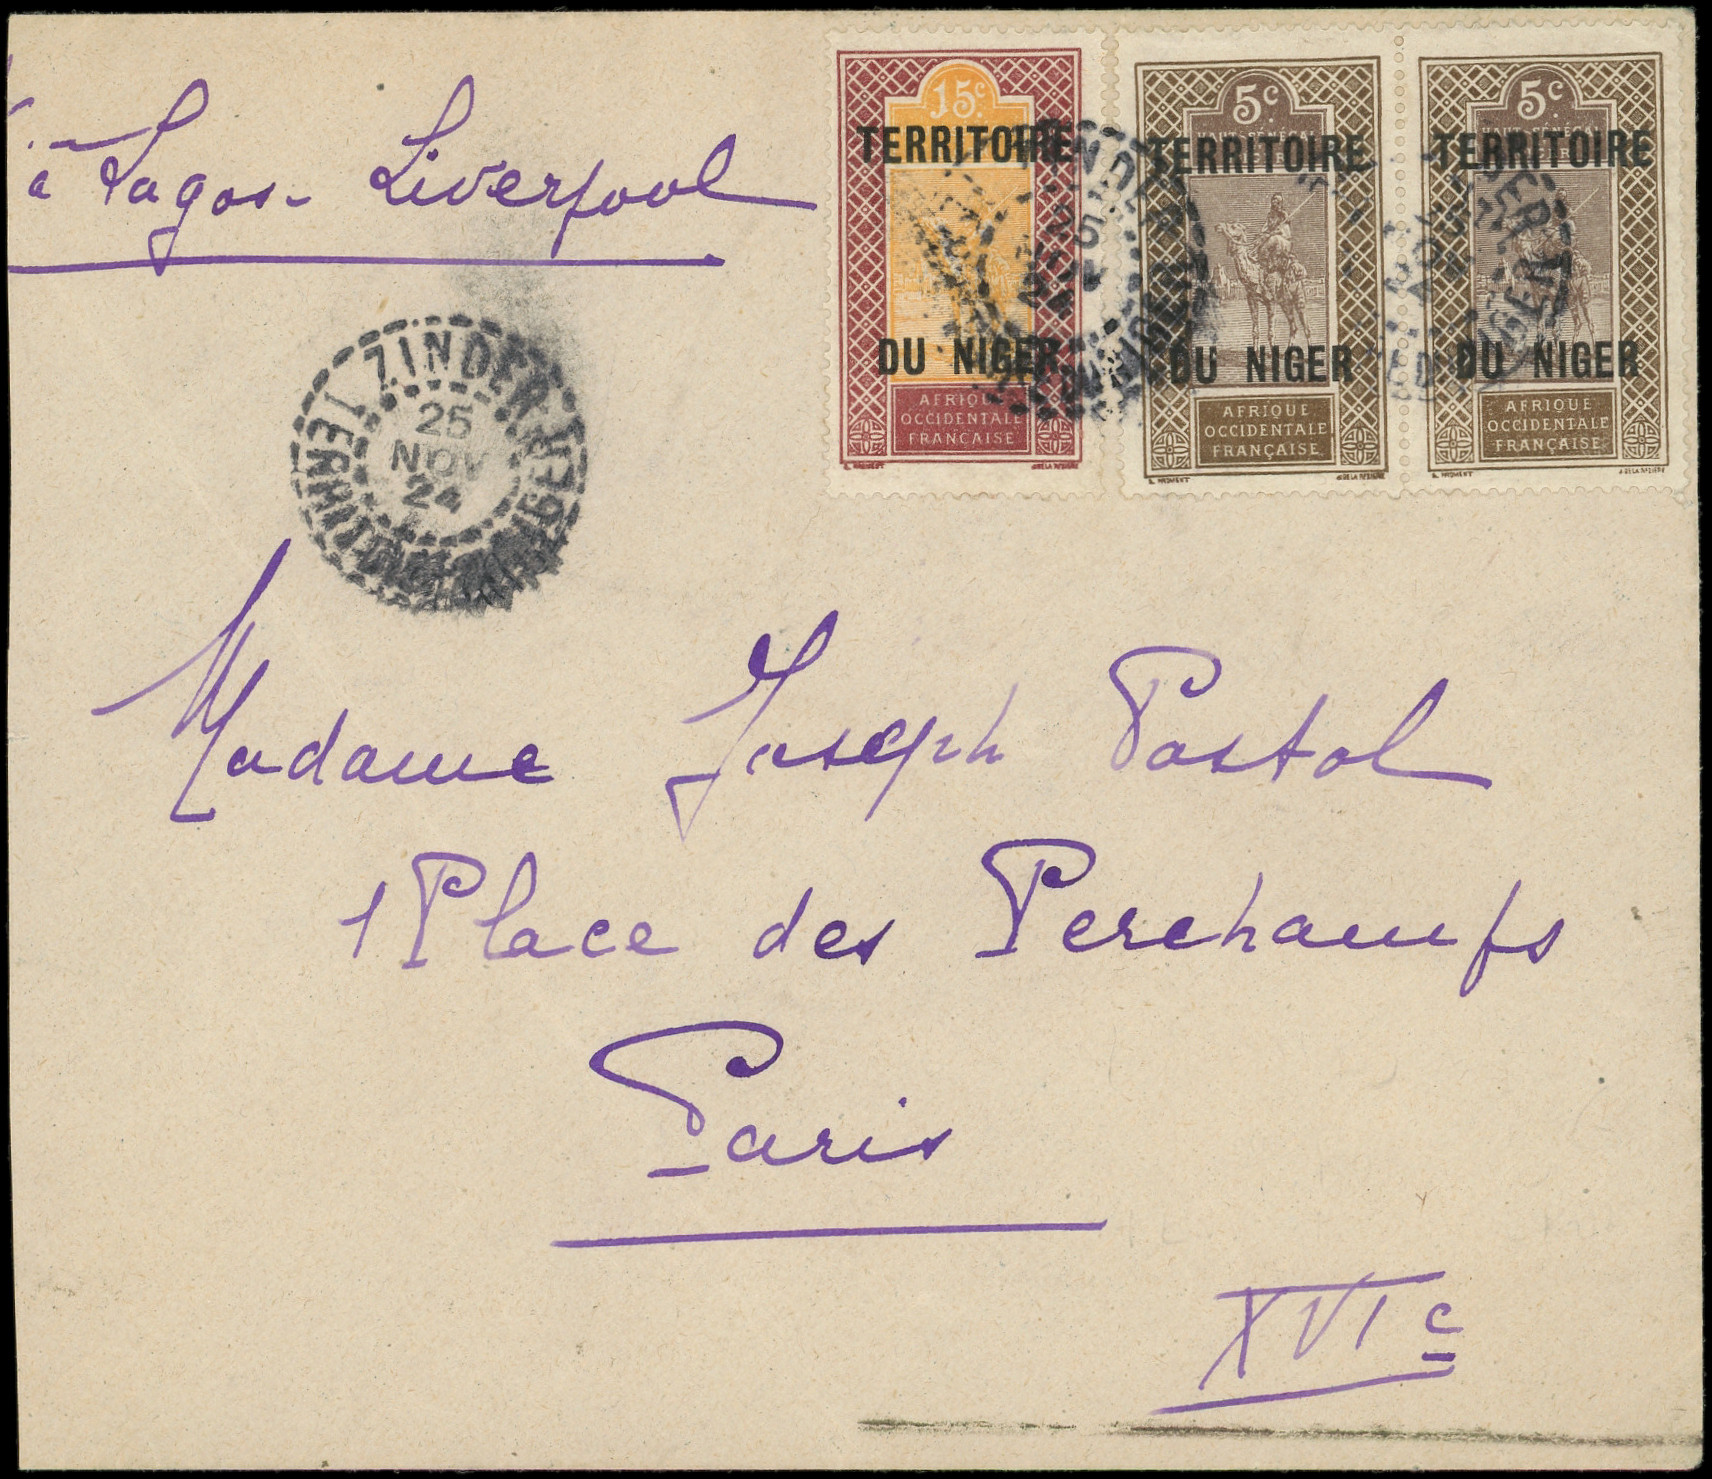 à Lagos - Liverpool
15c
TERRITOIRE
DU NIGER
AFRIQUE
OCCIDENTALE
FRANÇAISE
5c
HAUT-SÉNÉGAL
TERRITOIRE
DU NIGER
AFRIQUE
OCCIDENTALE
FRANÇAISE
5c
HAUT-SÉNÉGAL
TERRITOIRE
DU NIGER
AFRIQUE
OCCIDENTALE
FRANÇAISE
ZINDER
25
NOV
24
Madame Joseph Postol
1 Place des Perchamps
Paris
XVIe